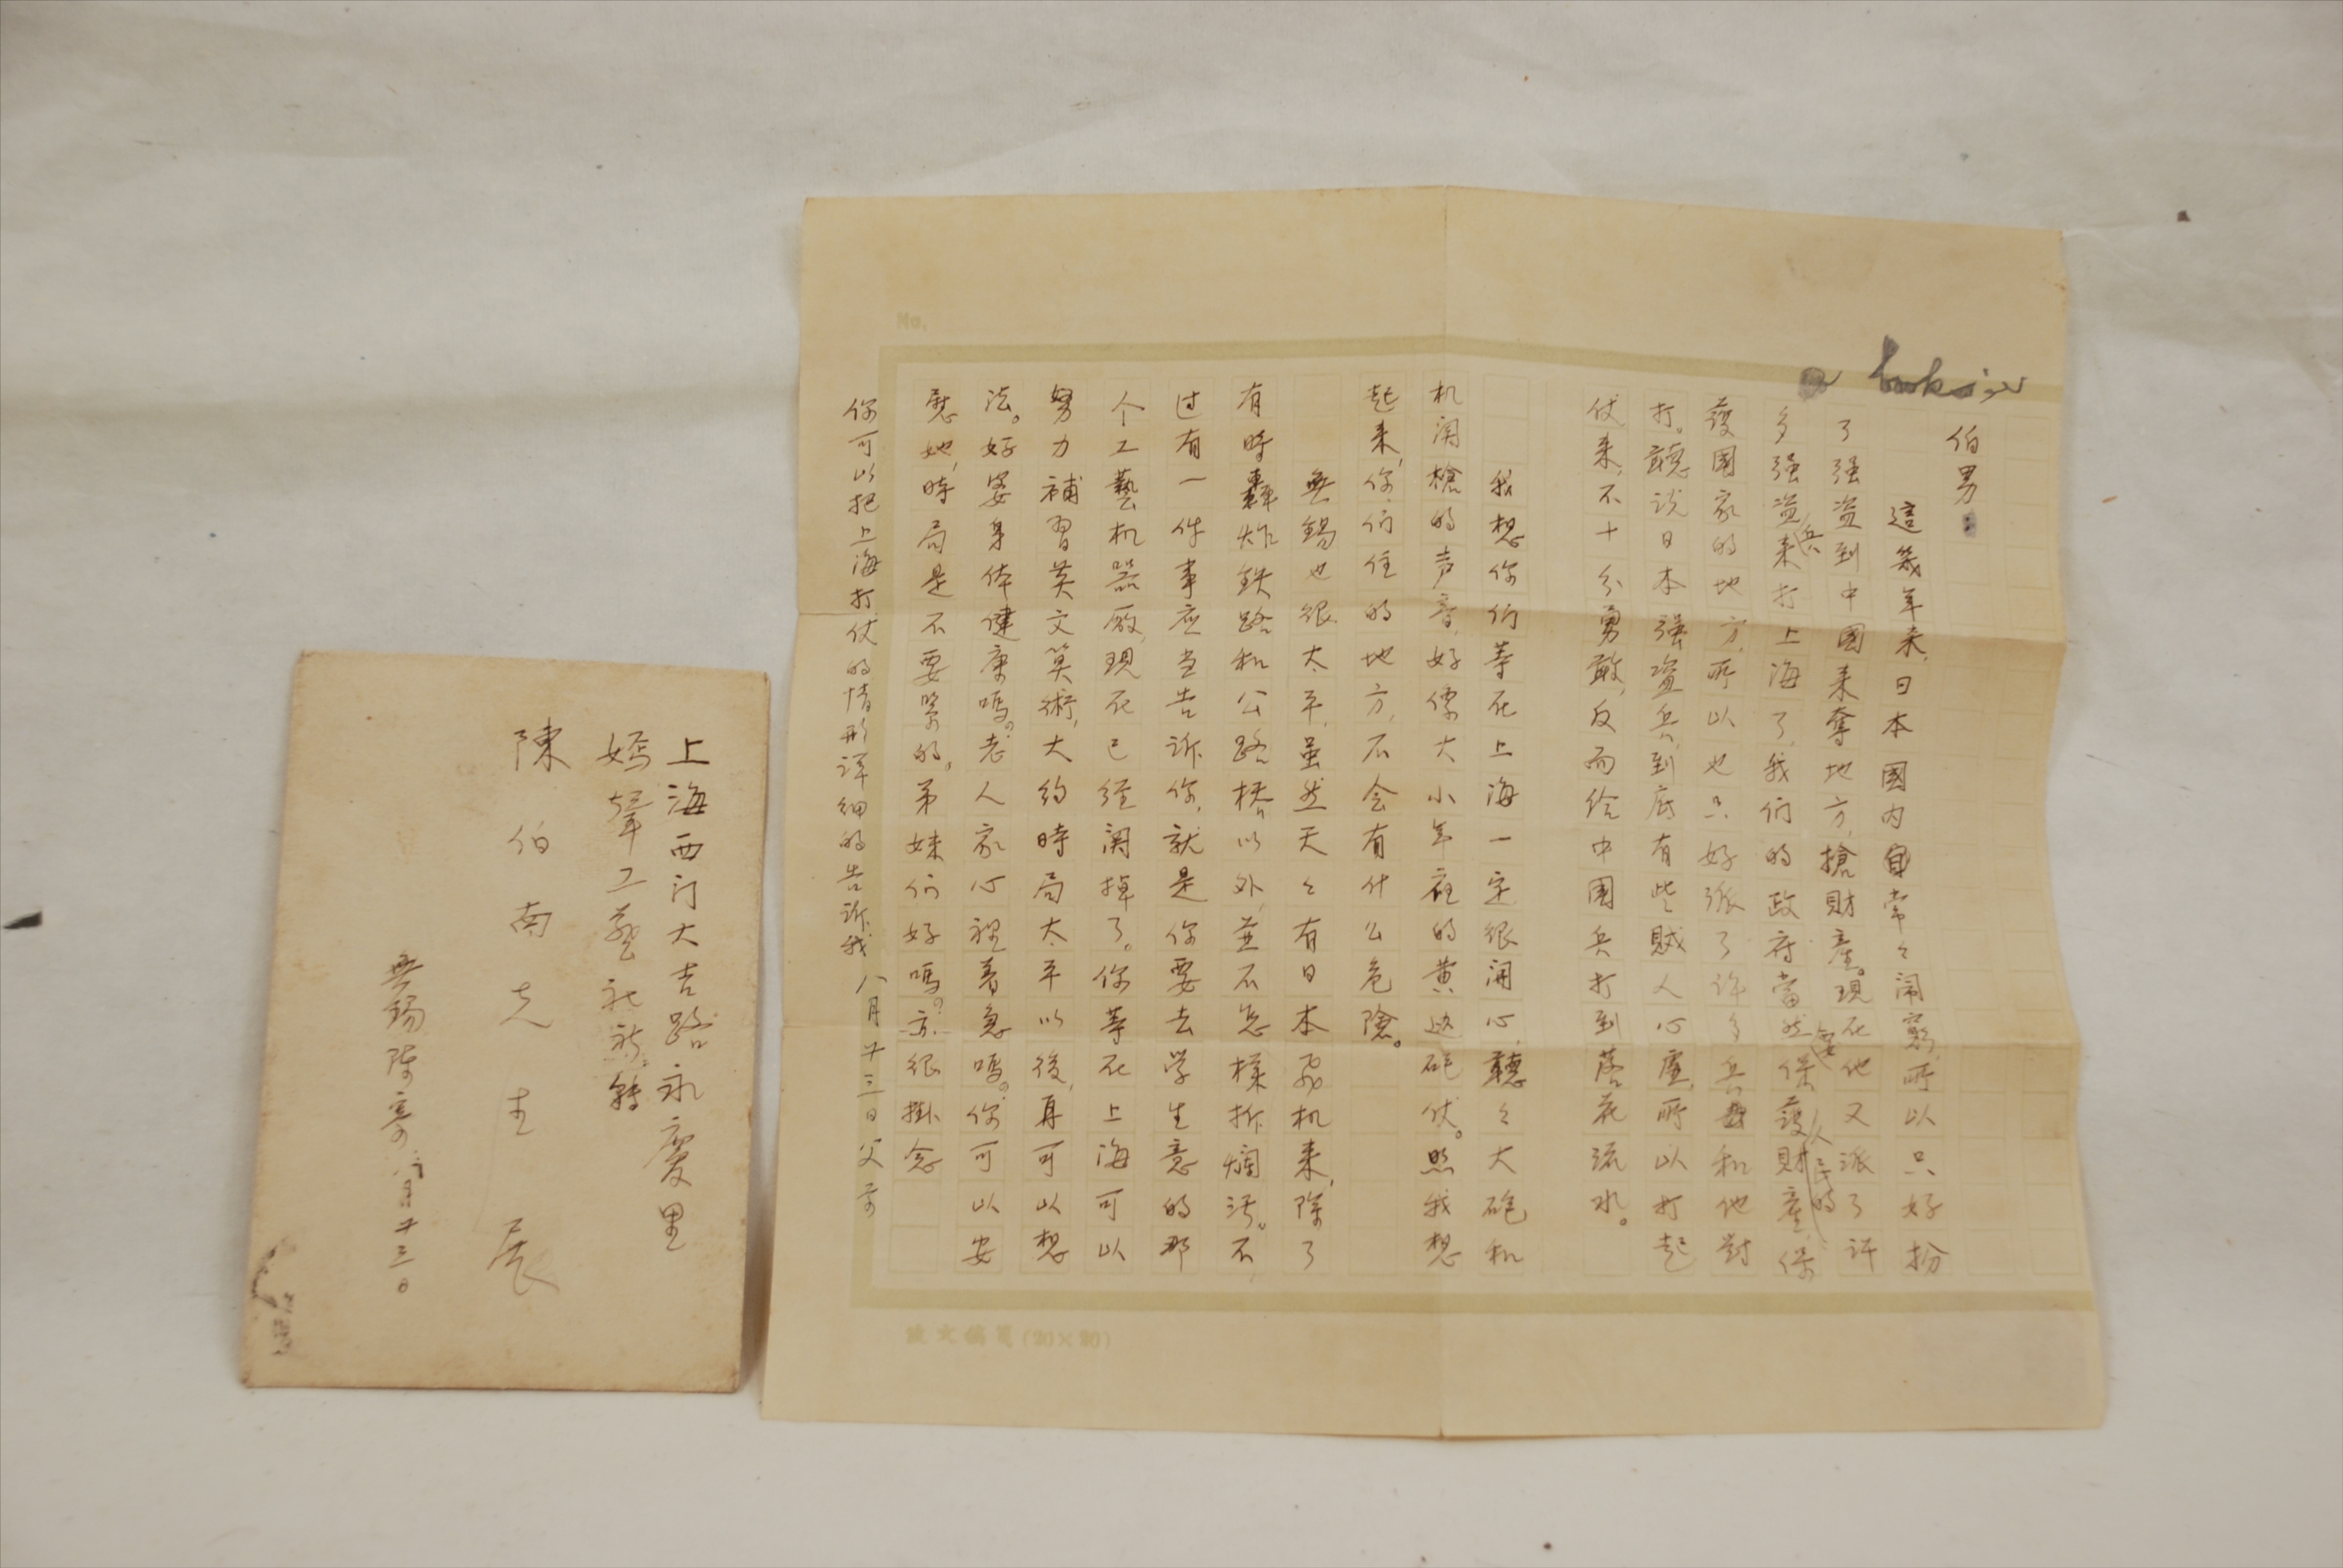 伯男
這幾年来，日本國内自常々闹窮，所以只好扮
了强盗到中國来奪地方，搶財産。現在他又派了许
多强盗兵来打上海了，我们的政府當然要保護人民的財產，保
護國家的地方，所以也只好派了许多兵和他對
打。聽说日本强盗兵，到底有些贼人心虚，所以打起
仗来，不十分勇敢，反而给中國兵打到落花流水。
我想你们等在上海一定很闹心，聽々大砲和
机関槍的声音，好像大小年夜的黄边砲仗。照我想
起来，你们住的地方，不会有什么危险。
無錫也很太平，虽然天々有日本飛机来，除了
有時轟炸鉄路和公路橋以外，並不怎樣拆爛污。不
过有一件事应当告诉你，就是你要去学生意的那
个工藝机器廠，現在已經関掉了。你等在上海可以
努力補習英文算術，大约時局太平以後，再可以想
法。好婆身体健康嗎？老人家心裡着急嗎？你可以安
慰她，時局是不要緊的。弟妹们好嗎？亦很掛念
你可以把上海打仗的情形详细的告诉我 八月廿三日父字
No.
(20×20)
上海西门大吉路永慶里
嫣聲工藝社 转
陳伯南先生 展
無錫陳寄 八月廿三日